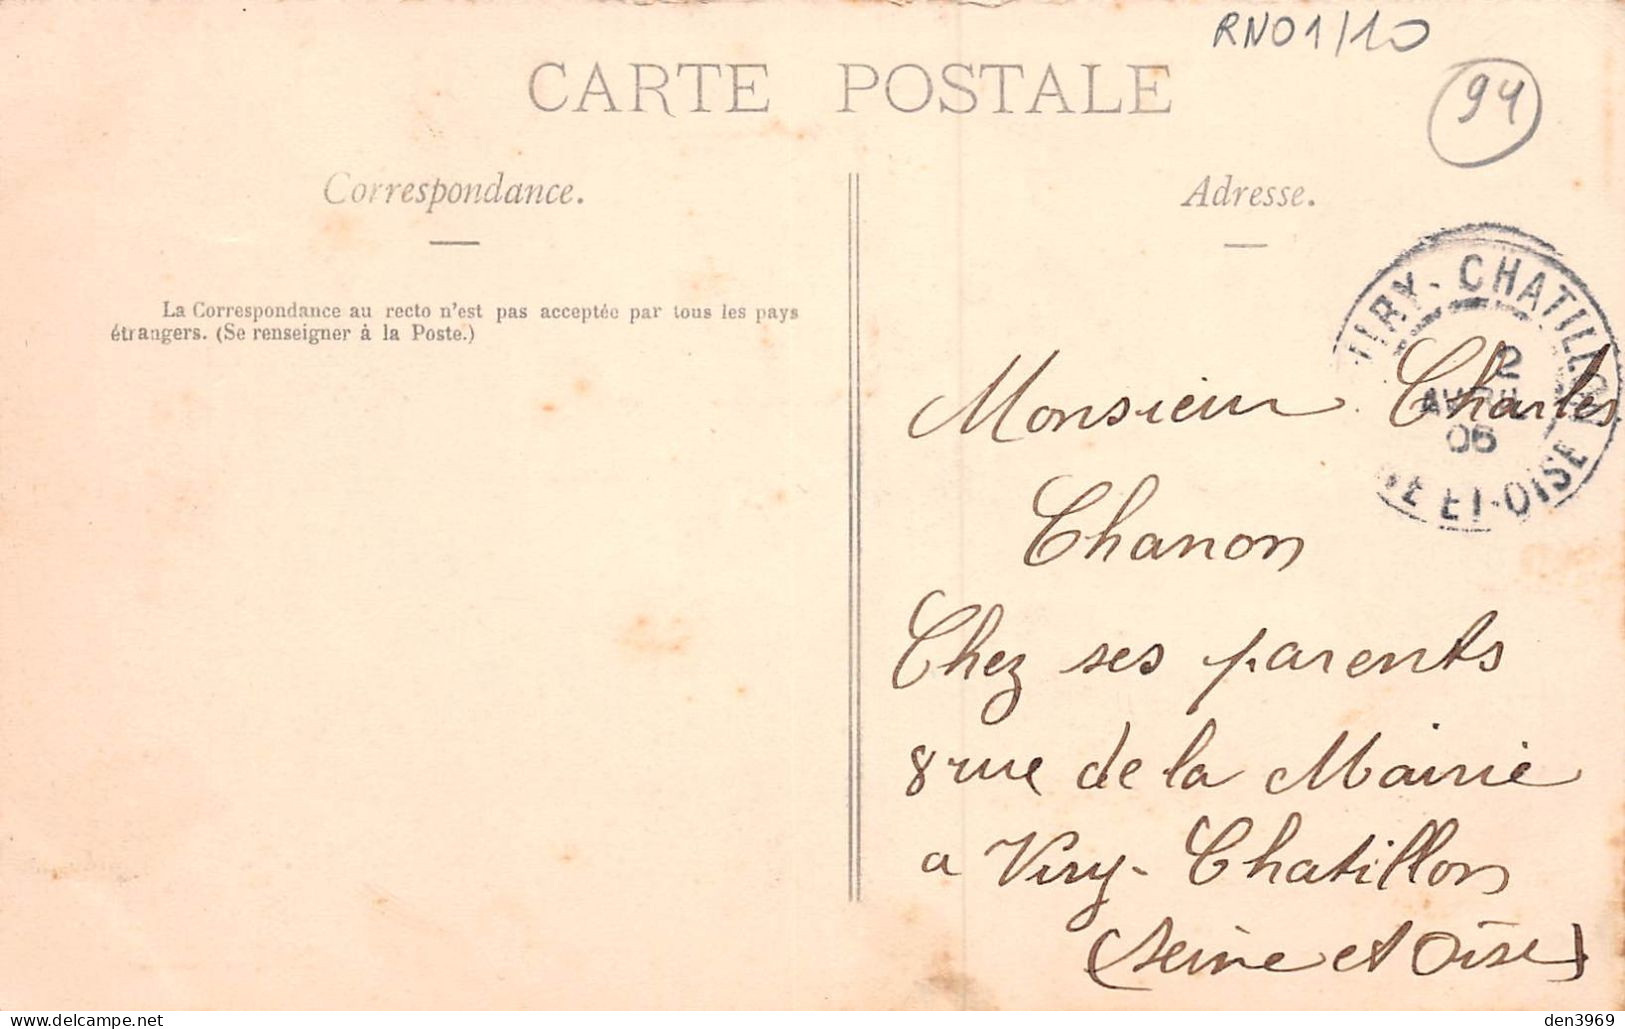 RN01/10
94
CARTE POSTALE
Correspondance.
Adresse.
La Correspondance au recto n'est pas acceptée par tous les pays
étrangers. (Se renseigner à la Poste.)
VIRY-CHATILLON
2
AVRIL
06
ET-OISE
Monsieur Charles
Chanon
Chez ses parents
8 rue de la Mairie
a Viry-Chatillon
(Seine et Oise)
den3969